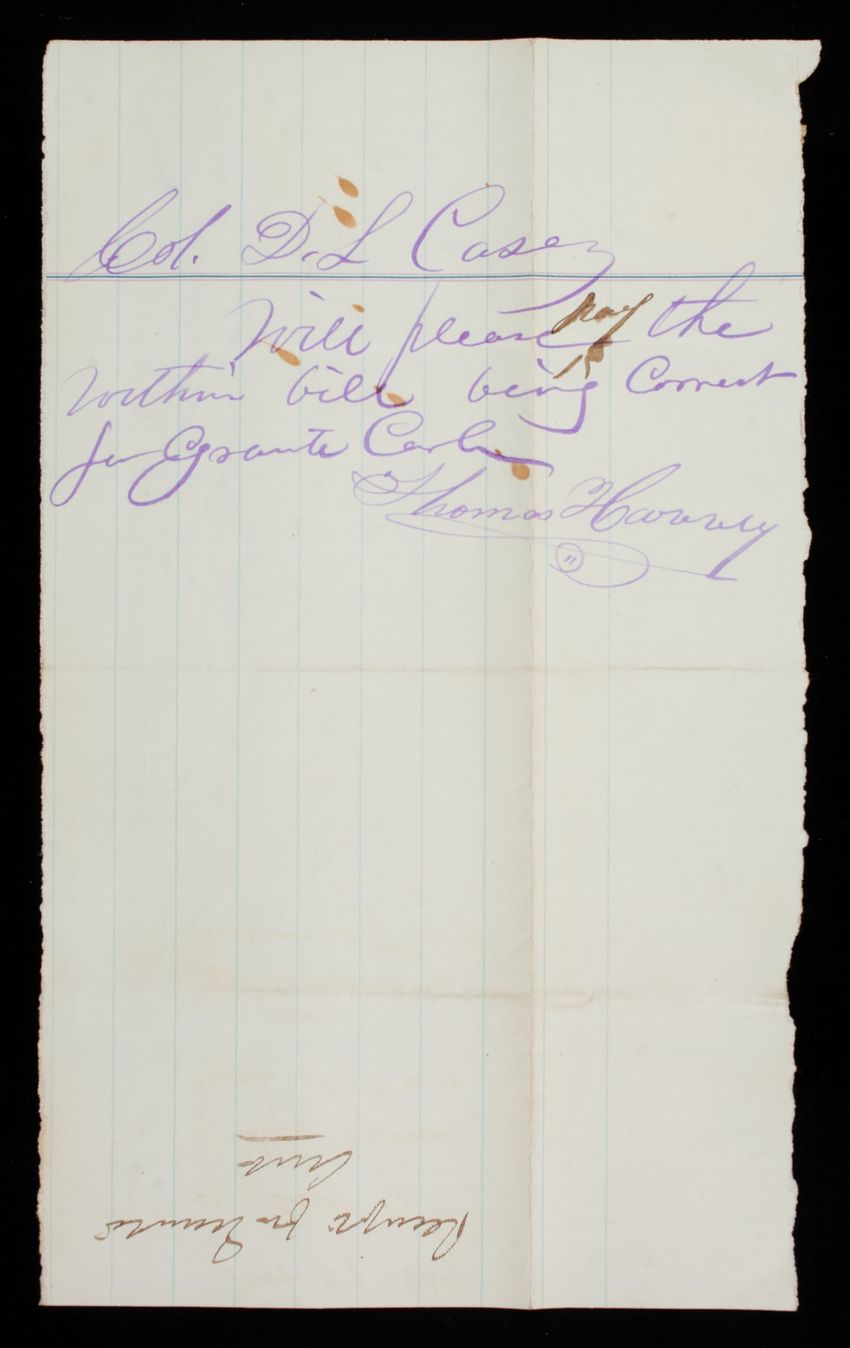 Col. D. L Casey
Will please pay the
within bill being Correct
for Granite Curb
Thomas Harvey
Receipt for Granite
Curb